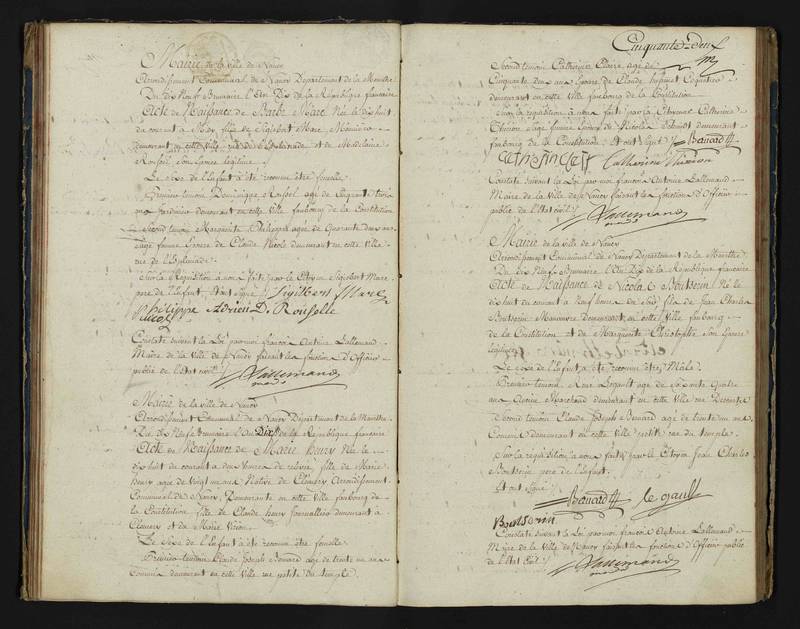 Mairie de la ville de Nancy
Arrondissement Communal de Nancy Département de la Meurthe
Du dix Neuf Brumaire l'An Dix de la République française
Acte de Naissance de Barbe Marc Née le dix huit
du courant à fille de Sigisbert Marc Manœuvre
demeurant en cette ville rue de l'Esplanade et de Madelaine
Roussel son Epouse légitime
Le sexe de l'Enfant a été reconnu être femelle
Premier temoin Dominique Roussel agé de Cinquante trois
ans Jardinier demeurant en cette ville faubourg de la Constitution
Second temoin Marguerite Philippe agée de Quarante deux ans
sage femme Epouse de Claude Nicolas demeurant en cette ville
rue de l'Esplanade
Sur la Requisition à nous faite par le Citoyen Sigisbert Marc
pere de l'Enfant. Et ont signé Sigisbert Marc
philippe Adrien D. Rouselle
Constaté suivant la Loi par moi françois Antoine Lallemand
Maire de la Ville de Nancy faisant les fonctions d'Officier
public de l'Etat civil Lallemand
Mairie de la ville de Nancy
Arrondissement Communal de Nancy Département de la Meurthe
Du dix Neuf Brumaire l'An Dix de la République française
Acte de Naissance de Marie henry Née le
dix huit du courant à deux heures de relevée, fille de Marie
henry agée de vingt un ans Native de Arrondissement
Communal de Nancy, Demeurante en cette Ville faubourg de
la Constitution fille de Claude henry demeurant à
et de Marie
Le sexe de l'Enfant a été reconnu être femelle
Premier temoin Claude Joseph Benard agé de trente un ans
Commis demeurant en cette ville rue petite du temple.
Cinquante-deux
Second temoin Catherine Claire agée de
Cinquante deux ans Epouse de Claude Coquetier
demeurant en cette Ville faubourg de la Constitution
Sur la réquisition à nous faite par la Citoyenne Catherine
Thirion sage femme Epouse de Nicolas demeurant
faubourg de la Constitution Et ont signé Benard
Catherine Thirion
Constaté suivant la Loi par moi françois Antoine Lallemand
Maire de la Ville de Nancy faisant les fonctions d'Officier
public de l'Etat civil Lallemand
Mairie de la ville de Nancy
Arrondissement Communal de Nancy Département de la Meurthe
Du dix Neuf Brumaire l'An Dix de la République française
Acte de Naissance de Nicolas Boutserin Né le
dix huit du courant à Neuf heures de soir fils de Jean Charles
Boutserin Manœuvre Demeurant en cette Ville faubourg
de la Constitution et de Marguerite Christophe son Epouse
légitime
Le sexe de l'Enfant a été reconnu être Mâle
Premier temoin Legault agé de soixante quatre
ans Marchand demeurant en cette ville rue
Second temoin Claude Joseph Benard agé de trente un ans
Commis demeurant en cette ville petite rue du temple.
Sur la réquisition à nous faite par le Citoyen Jean Charles
Boutserin pere de l'Enfant.
Et ont signé
Benard le gault
Boutserin
Constaté suivant la Loi par moi françois Antoine Lallemand
Maire de la Ville de Nancy faisant les fonctions d'Officier public
de l'Etat Civil Lallemand